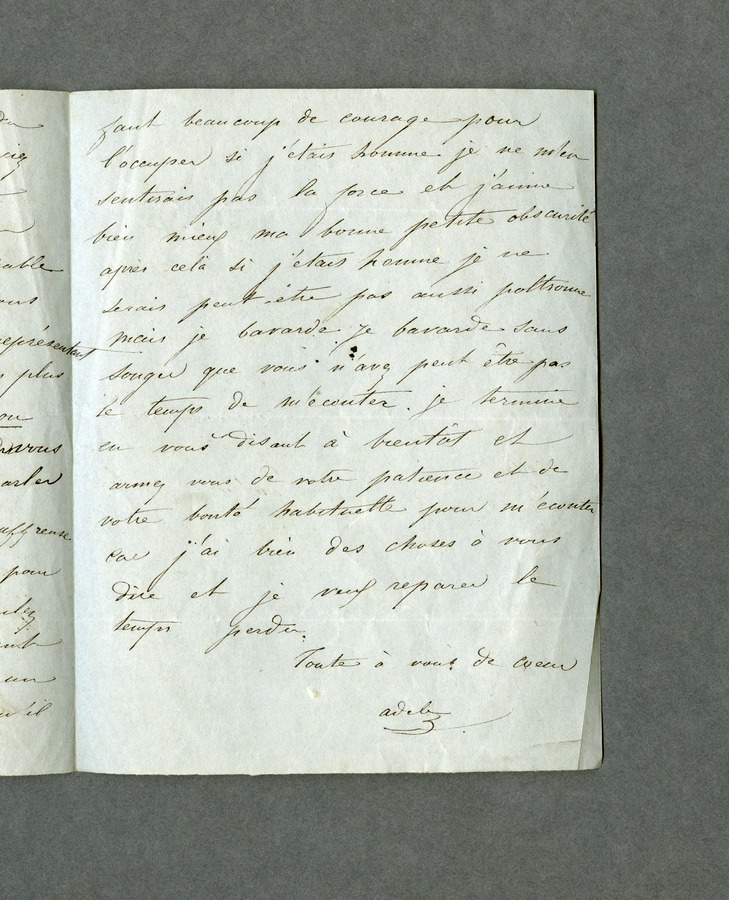 faut beaucoup de courage pour
l'occuper si j'étais homme je ne m'en
sentirais pas la force et j'aime
bien mieux ma bonne petite obscurité
après cela si j'étais homme je ne
serais peut-être pas aussi poltronne
mais je bavarde je bavarde sans
songer que vous n'avez peut être pas
le temps de m'écouter. je termine
en vous disant à bientôt et
armez vous de votre patience et de
votre bonté habituelle pour m'écouter
car j'ai bien des choses à vous
dire et je veux reparer le
temps perdu.
Toute à vous de coeur
adele
able
ous
représentant
plus
ou
vous
arler
affreuse
pour
un
u'il